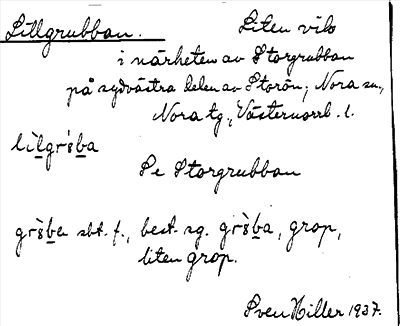 Lillgrubban. Liten vik
i närheten av Storgrubban
på sydvästra delen av Storön, Nora sn,
Nora tg., Västernorrl. l.
lìlgrs̀ba
Se Storgrubban
grs̀ba sbt. f., best. sg. grs̀ba, grop,
liten grop.
Sven Hiller 1937.